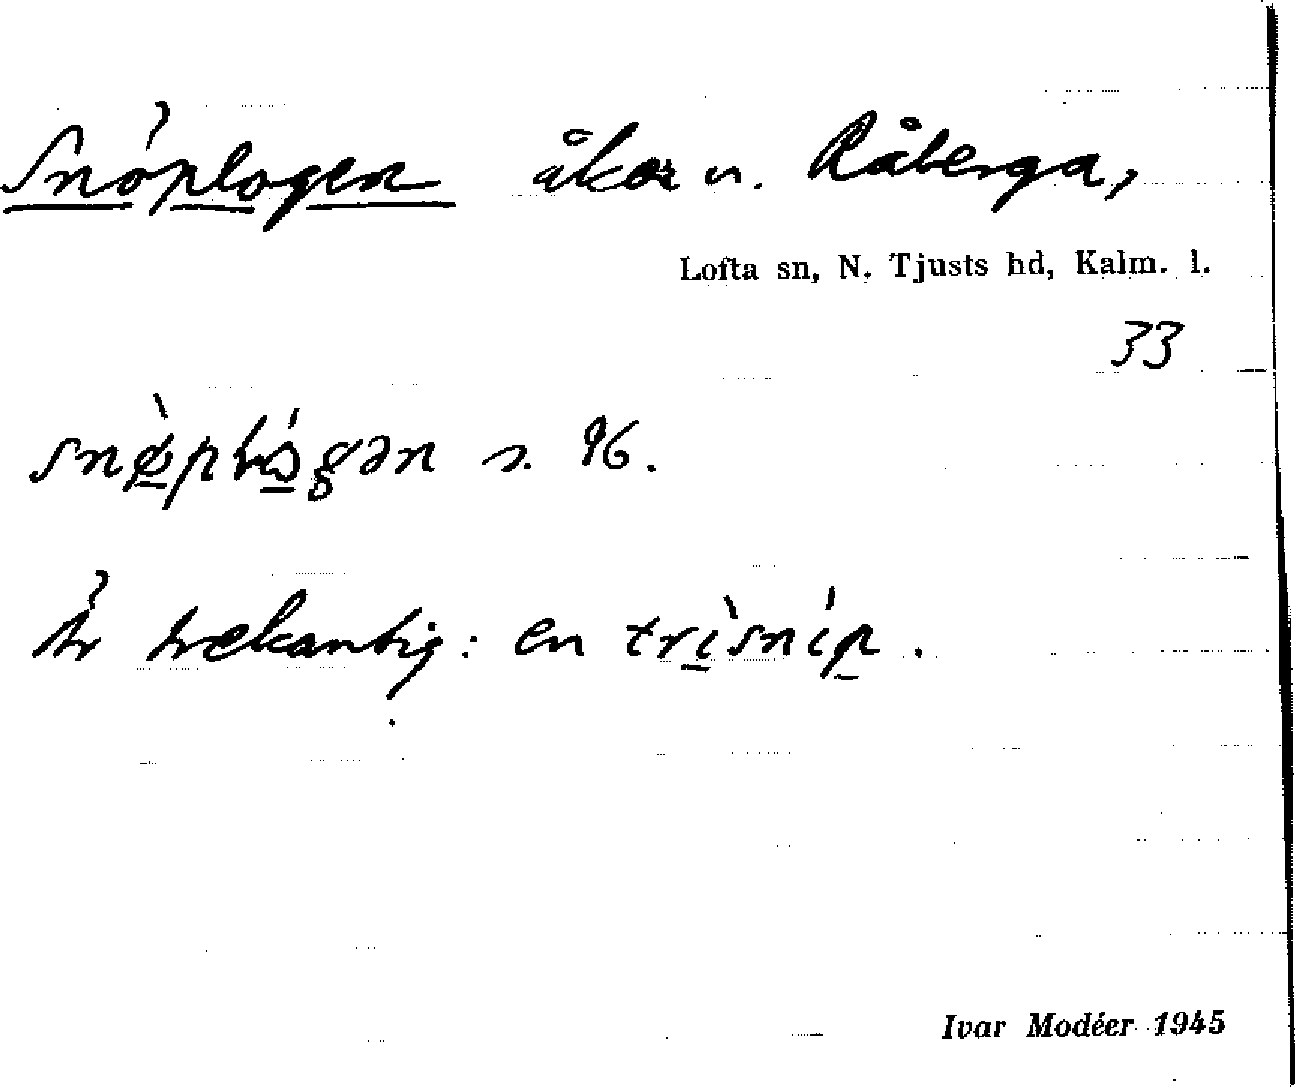 Snöplogen åker u. Råberga,
Lofta sn, N. Tjusts hd, Kalm. l.
33
snø̀plógən s. 96.
Är trekantig: en trìsníp.
Ivar Modéer 1945